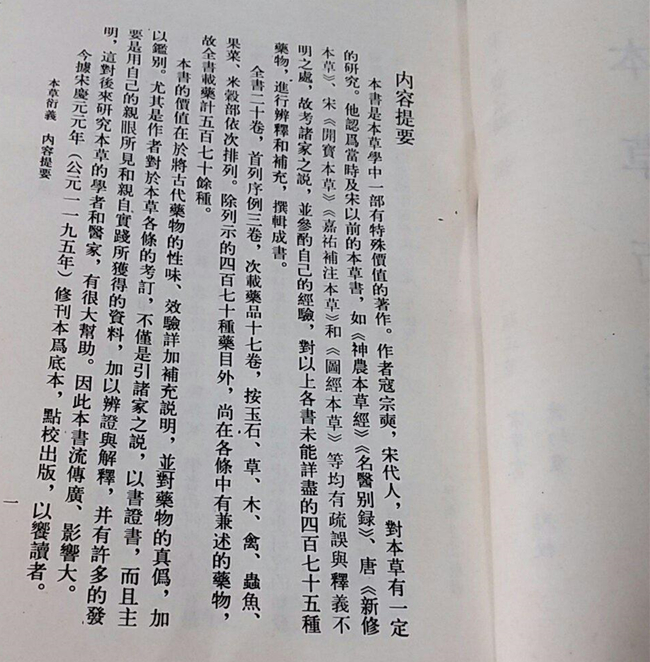 内容提要
本書是本草學中一部有特殊價值的著作。作者寇宗奭，宋代人，對本草有一定
的研究。他認爲當時及宋以前的本草書，如《神農本草經》《名醫别録》、唐《新修
本草》、宋《開寶本草》《嘉祐補注本草》和《圖經本草》等均有疏誤與釋義不
明之處，故考諸家之説，並參酌自己的經驗，對以上各書未能詳盡的四百七十五種
藥物，進行辨釋和補充，撰輯成書。
全書二十卷，首列序例三卷，次載藥品十七卷，按玉石、草、木、禽、蟲魚、
果菜、米穀部依次排列。除列示的四百七十種藥目外，尚在各條中有兼述的藥物，
故全書載藥計五百七十餘種。
本書的價值在於將古代藥物的性味、效驗詳加補充説明，並對藥物的真僞，加
以鑑别。尤其是作者對於本草各條的考訂，不僅是引諸家之説，以書證書，而且主
要是用自己的親眼所見和親自實踐所獲得的資料，加以辨證與解釋，并有許多的發
明，這對後來研究本草的學者和醫家，有很大幫助。因此本書流傳廣、影響大。
今據宋慶元元年（公元一一九五年）修刊本爲底本，點校出版，以饗讀者。
本草衍義 内容提要
一
本草